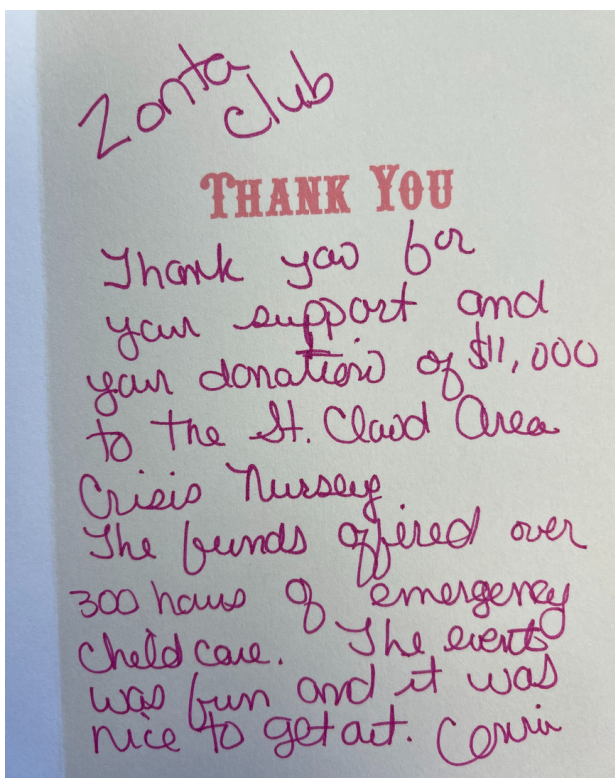 Zonta
Club
THANK YOU
Thank you for
your support and
your donation of $11,000
to the St. Cloud Area
Crisis Nursery
The funds offered over
300 hours of emergency
child care. The event
was fun and it was
nice to get out.